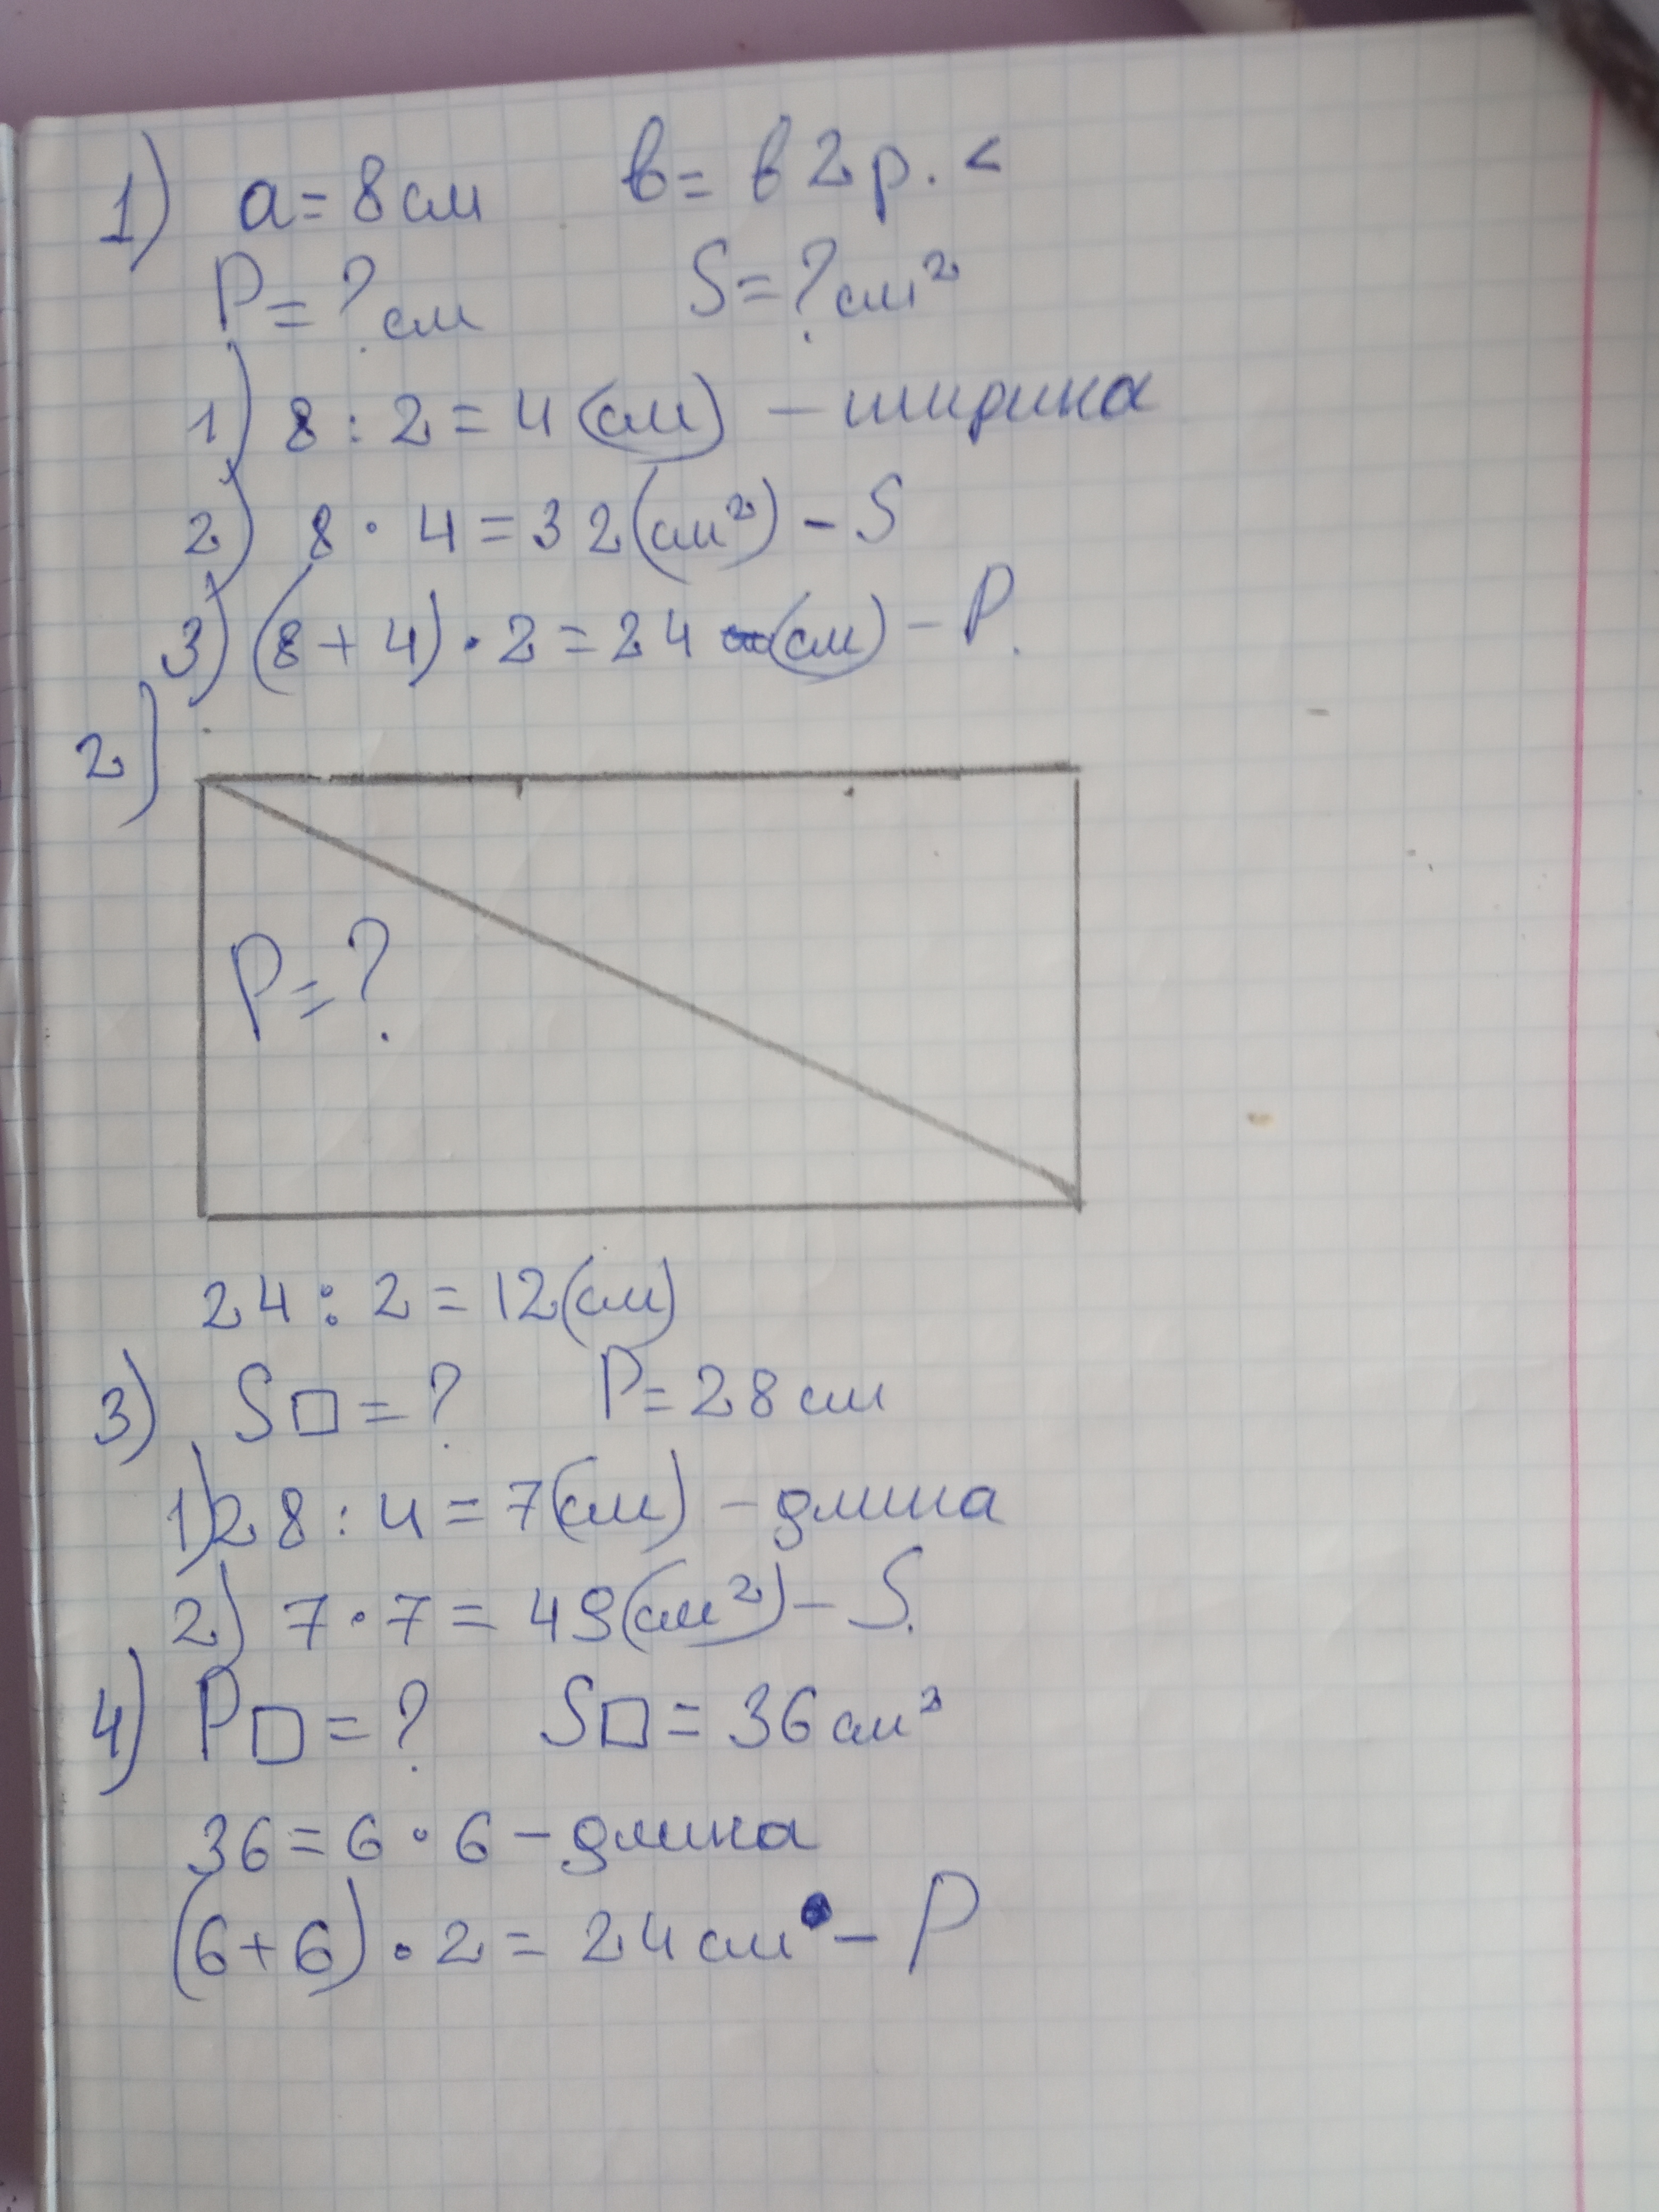 1) a = 8 см в = в 2 р. <
P = ? см S = ? см²
1) 8 : 2 = 4 (см) – ширина
2) 8 · 4 = 32 (см²) – S
3) (8 + 4) · 2 = 24 (см) – P.
2)
P = ?
24 : 2 = 12 (см)
3) S□ = ? P = 28 см
1) 28 : 4 = 7 (см) – длина
2) 7 · 7 = 49 (см²) – S.
4) P□ = ? S□ = 36 см²
36 = 6 · 6 – длина
(6 + 6) · 2 = 24 см – P